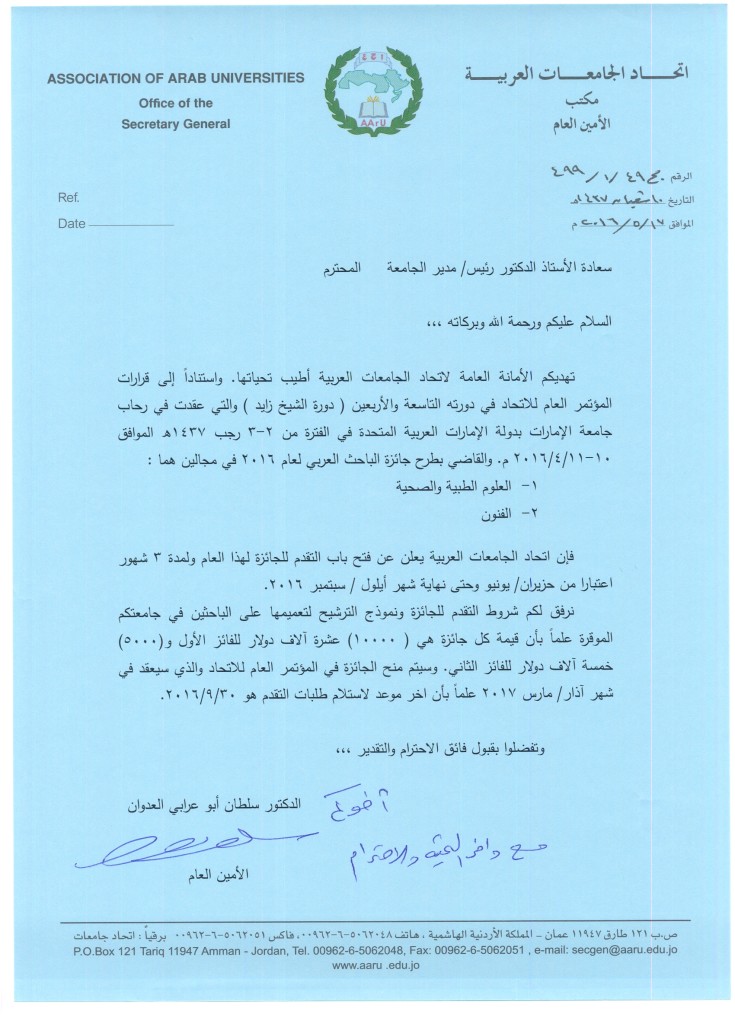 ASSOCIATION OF ARAB UNIVERSITIES
Office of the
Secretary General
AArU
اتحاد الجامعات العربية
مكتب
الأمين العام
الرقم ٤٩٩/١/٤٩
التاريخ ١٠ شعبان ١٤٣٧هـ
الموافق ٢٠١٦/٥/١٧ م
Ref.
Date
سعادة الأستاذ الدكتور رئيس/ مدير الجامعة المحترم
السلام عليكم ورحمة الله وبركاته ،،،
تهديكم الأمانة العامة لاتحاد الجامعات العربية أطيب تحياتها. واستناداً إلى قرارات
المؤتمر العام للاتحاد في دورته التاسعة والأربعين ( دورة الشيخ زايد ) والتي عقدت في رحاب
جامعة الإمارات بدولة الإمارات العربية المتحدة في الفترة من ٢-٣ رجب ١٤٣٧هـ الموافق
١٠-٢٠١٦/٤/١١ م. والقاضي بطرح جائزة الباحث العربي لعام ٢٠١٦ في مجالين هما :
١- العلوم الطبية والصحية
٢- الفنون
فإن اتحاد الجامعات العربية يعلن عن فتح باب التقدم للجائزة لهذا العام ولمدة ٣ شهور
اعتبارا من حزيران/ يونيو وحتى نهاية شهر أيلول / سبتمبر ٢٠١٦.
نرفق لكم شروط التقدم للجائزة ونموذج الترشيح لتعميمها على الباحثين في جامعتكم
الموقرة علماً بأن قيمة كل جائزة هي ( ١٠٠٠٠) عشرة آلاف دولار للفائز الأول و(٥٠٠٠)
خمسة آلاف دولار للفائز الثاني. وسيتم منح الجائزة في المؤتمر العام للاتحاد والذي سيعقد في
شهر آذار/ مارس ٢٠١٧ علماً بأن اخر موعد لاستلام طلبات التقدم هو ٢٠١٦/٩/٣٠.
وتفضلوا بقبول فائق الاحترام والتقدير ،،،
أخوكم
الدكتور سلطان أبو عرابي العدوان
مع وافر التحية والاحترام
الأمين العام
ص.ب ١٢١ طارق ١١٩٤٧ عمان – المملكة الأردنية الهاشمية ، هاتف ٥٠٦٢٠٤٨-٦-٠٠٩٦٢، فاكس ٥٠٦٢٠٥١-٦-٠٠٩٦٢ برقياً : اتحاد جامعات
P.O.Box 121 Tariq 11947 Amman - Jordan, Tel. 00962-6-5062048, Fax: 00962-6-5062051 , e-mail: secgen@aaru.edu.jo
www.aaru .edu.jo